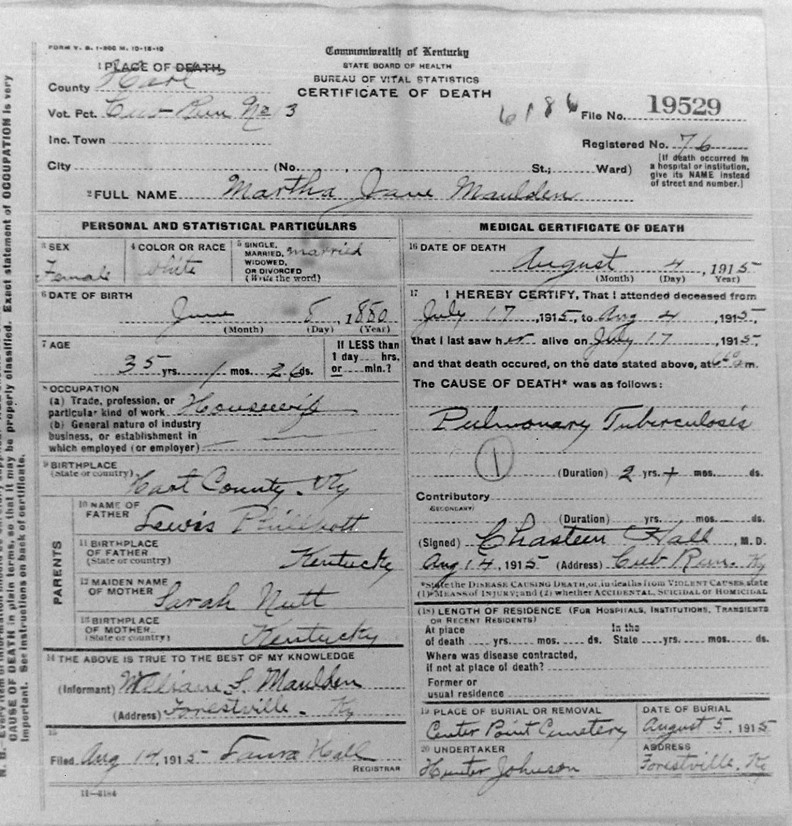 FORM V. S. 1-
Commonwealth of Kentucky
STATE BOARD OF HEALTH
BUREAU OF VITAL STATISTICS
CERTIFICATE OF DEATH
1 PLACE OF DEATH
County Hart
Vot. Pct. Cub Run No 3
Inc. Town
City (No. St.; Ward)
6186 File No. 19529
Registered No. 76
[If death occurred in a hospital or institution, give its NAME instead of street and number.]
2 FULL NAME Martha Jane Maulden
PERSONAL AND STATISTICAL PARTICULARS
3 SEX
Female
4 COLOR OR RACE
White
5 SINGLE, MARRIED, WIDOWED, OR DIVORCED (Write the word)
married
6 DATE OF BIRTH
June 8, 1880
(Month) (Day) (Year)
7 AGE
35 yrs. 1 mos. 26 ds.
If LESS than 1 day hrs. or min.?
8 OCCUPATION
(a) Trade, profession, or
particular kind of work Housewife
(b) General nature of industry
business, or establishment in
which employed (or employer)
9 BIRTHPLACE
(State or country) Hart County. Ky
PARENTS
10 NAME OF FATHER
Lewis Phillpott
11 BIRTHPLACE OF FATHER
(State or country) Kentucky
12 MAIDEN NAME OF MOTHER
Sarah Nutt
13 BIRTHPLACE OF MOTHER
(State or country) Kentucky
14 THE ABOVE IS TRUE TO THE BEST OF MY KNOWLEDGE
(Informant) William S. Maulden
(Address) Forestville. Ky
15
Filed Aug 14, 1915 Laura Hall
REGISTRAR
11-3184
MEDICAL CERTIFICATE OF DEATH
16 DATE OF DEATH
August 4, 1915
(Month) (Day) (Year)
17 I HEREBY CERTIFY, That I attended deceased from
July 17, 1915, to Aug 4, 1915,
that I last saw her alive on July 17, 1915,
and that death occured, on the date stated above, at m.
The CAUSE OF DEATH* was as follows:
Pulmonary Tuberculosis
1
(Duration) 2 yrs. + mos. ds.
Contributory
SECONDARY)
(Duration) yrs. mos. ds.
(Signed) Chasteen Hall, M. D.
Aug 14, 1915 (Address) Cub Run. Ky
*State the DISEASE CAUSING DEATH, or, in deaths from VIOLENT CAUSES, state
(1) MEANS OF INJURY; and (2) whether ACCIDENTAL, SUICIDAL or HOMICIDAL
(18) LENGTH OF RESIDENCE (FOR HOSPITALS, INSTITUTIONS, TRANSIENTS
OR RECENT RESIDENTS)
At place In the
of death yrs. mos. ds. State yrs. mos. ds.
Where was disease contracted,
if not at place of death?
Former or
usual residence
19 PLACE OF BURIAL OR REMOVAL
Center Point Cemetery
DATE OF BURIAL
August 5, 1915
20 UNDERTAKER
Hunter Johnson
ADDRESS
Forestville. Ky
CAUSE OF DEATH in plain terms, so that it may be properly classified. Exact statement of OCCUPATION is very
important. See instructions on back of certificate.